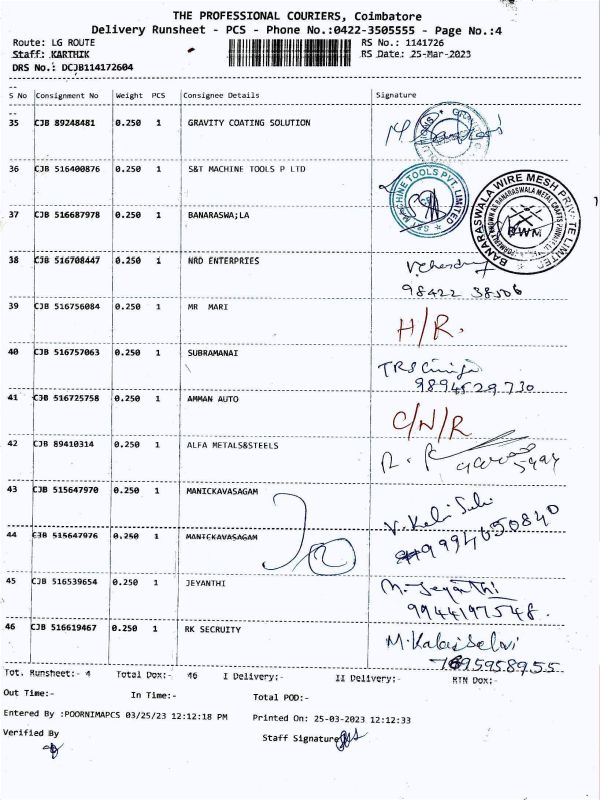 THE PROFESSIONAL COURIERS, Coimbatore
Delivery Runsheet - PCS - Phone No.:0422-3505555 - Page No.:4
Route: LG ROUTE RS No.: 1141726
Staff: KARTHIK RS Date: 25-Mar-2023
DRS No.: DCJB114172604
S No Consignment No Weight PCS Consignee Details Signature
35 CJB 89248481 0.250 1 GRAVITY COATING SOLUTION
36 CJB 516400876 0.250 1 S&T MACHINE TOOLS P LTD
S&T MACHINE TOOLS PVT. LIMITED
BANARASWALA WIRE MESH PRIVATE LIMITED
BWM
37 CJB 516687978 0.250 1 BANARASWA;LA
38 CJB 516708447 0.250 1 NRD ENTERPRIES
98422 38506
39 CJB 516756084 0.250 1 MR MARI H/R.
40 CJB 516757063 0.250 1 SUBRAMANAI
9894529730
41 CJB 516725758 0.250 1 AMMAN AUTO C/N/R
42 CJB 89410314 0.250 1 ALFA METALS&STEELS
43 CJB 515647970 0.250 1 MANICKAVASAGAM V. Kalai Selvi
44 CJB 515647976 0.250 1 MANICKAVASAGAM 9994650840
45 CJB 516539654 0.250 1 JEYANTHI M. Jeyanthi
9944197548.
46 CJB 516619467 0.250 1 RK SECRUITY M. KalaiSelvi
Tot. Runsheet:- 4 Total Dox:- 46 I Delivery:- II Delivery:- RTN Dox:-
Out Time:- In Time:- Total POD:-
Entered By :POORNIMAPCS 03/25/23 12:12:18 PM Printed On: 25-03-2023 12:12:33
Verified By Staff Signature